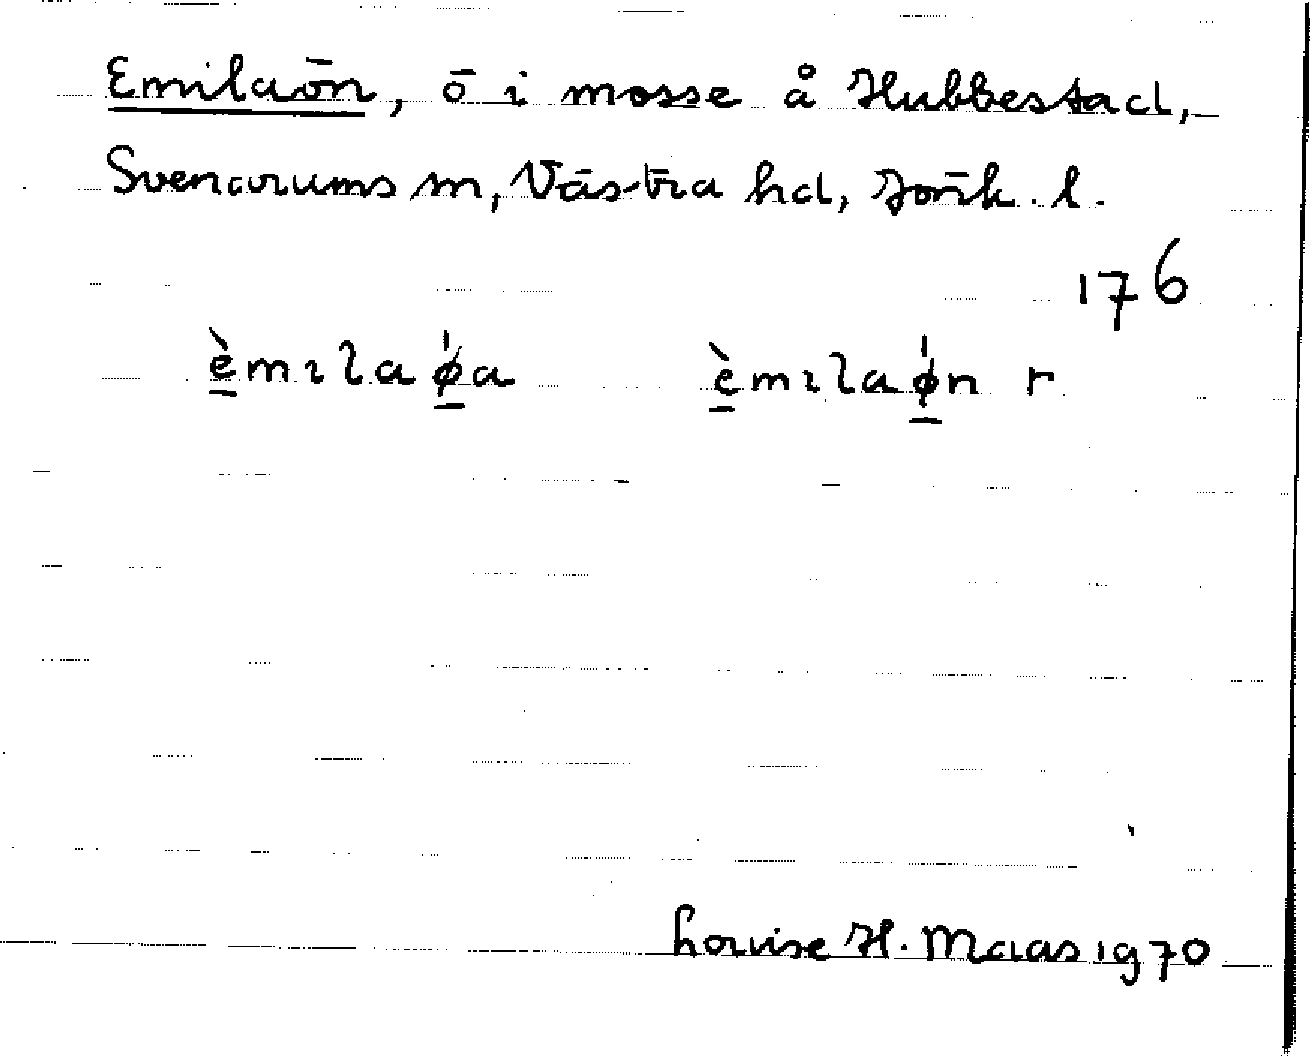 Emilaön, ö i mosse å Hubbestad,
Svenarums sn, Västra hd, Jönk. l.
176
è̱mılaǿ̱a è̱mılaǿ̱n r
Louise H. Maas 1970